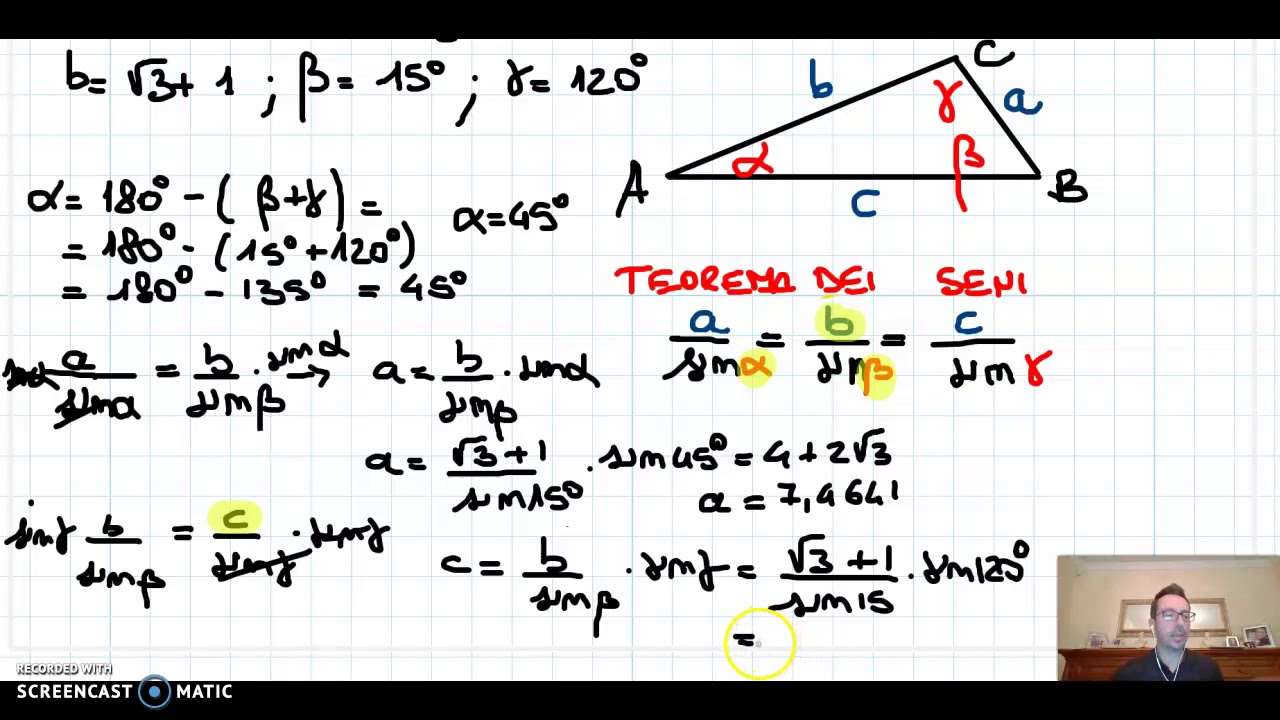 b = √3 + 1 ; β = 15° ; γ = 120°
α = 180° - ( β + γ ) =
= 180° - (15° + 120°)
= 180° - 135° = 45°
α = 45°
A
b
C
γ
a
α
β
c
B
TEOREMA DEI SENI
a/sin α = b/sin β = c/sin γ
sin α a/sin α = b/sin β · sin α → a = b/sin β · sin α
a = √3 + 1/sin 15° · sin 45° = 4 + 2√3
a = 7,4641
sin γ b/sin β = c/sin γ · sin γ
c = b/sin β · sin γ = √3 + 1/sin 15 · sin 120°
=
RECORDED WITH
SCREENCAST MATIC